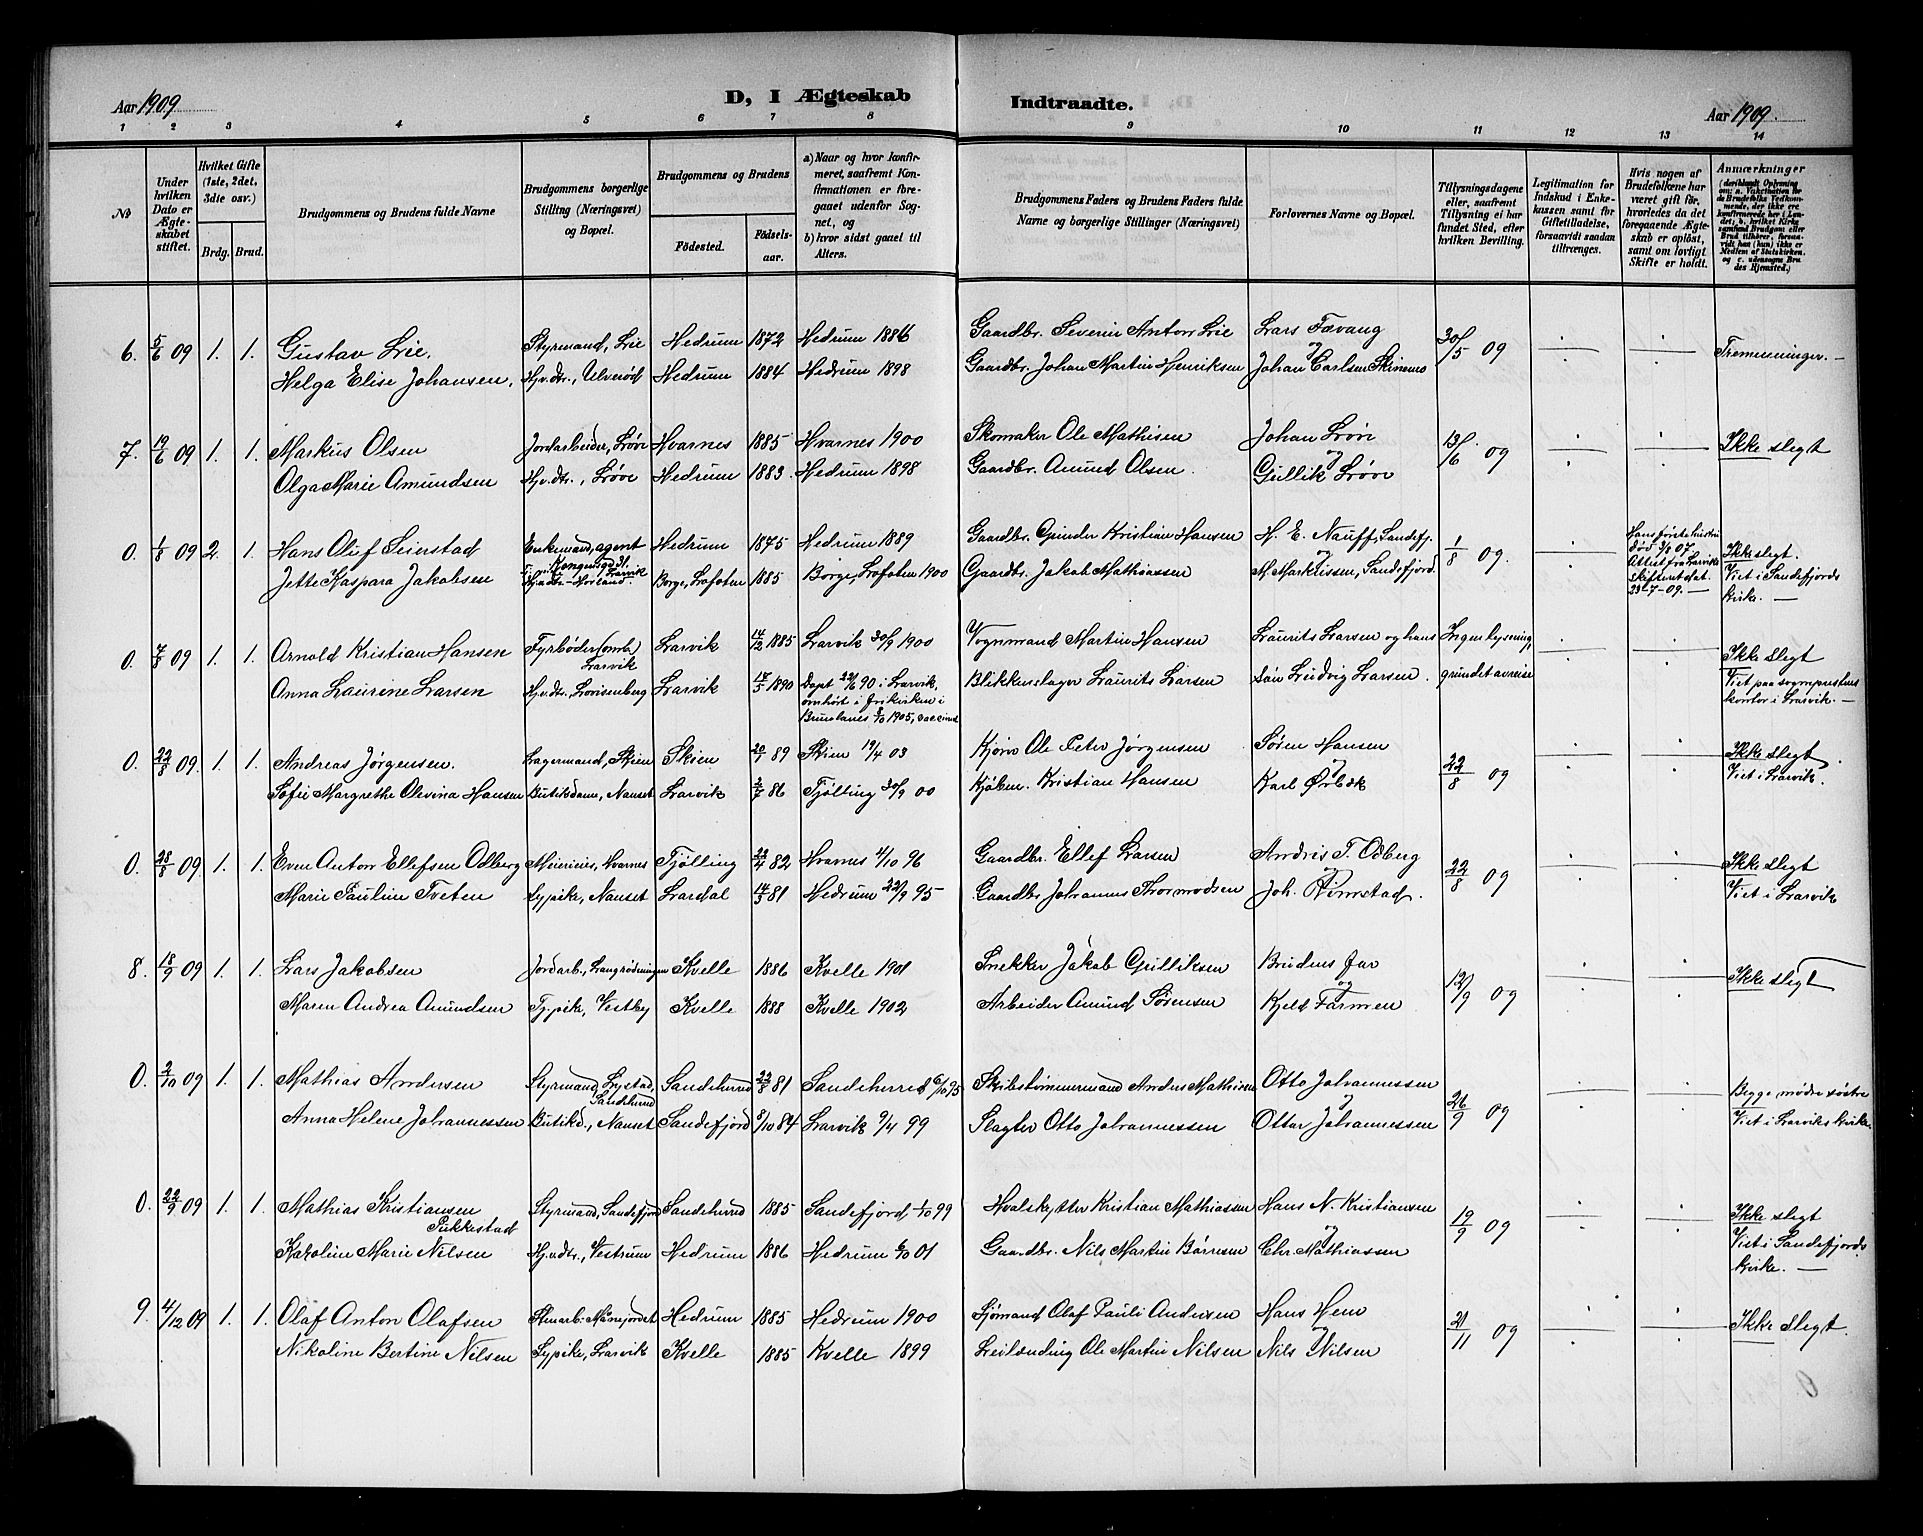 Aar 1909
D, I Ægteskab
Indtraadte.
Aar 1909.
1 2 3 4 5 6 7 8 9 10 11 12 13 14
No
Under hvilken Dato er Ægteskabet stiftet.
Hvilket Gifte (1ste, 2det, 3die osv.)
Brdg. Brud.
Brudgommens og Brudens fulde Navne
Brudgommens borgerlige Stilling (Næringsvei) og Bopæl.
Brudgommens og Brudens
Födested.
Födselsaar.
a) Naar og hvor konfirmeret, saafremt Konfirmationen er foregaaet udenfor Sognet, og
b) hvor sidst gaaet til Alters.
Brudgommens Faders og Brudens Faders fulde Navne og borgerlige Stillinger (Næringsvei)
Forlovernes Navne og Bopæl.
Tillysningsdagene eller, saafremt Tillysning ei har fundet Sted, efter hvilken Bevilling.
Legitimation for Indskud i Enkekassen samt for Giftetilladelse, forsaavidt saadan tiltrænges.
Hvis nogen af Brudefolkene har været gift før, hvorledes da det foregaaende Ægteskab er oplöst, samt om lovligt Skifte er holdt.
Anmærkninger
(deriblandt Oplysning om: a. Vakcination for de Brudefolks Vedkommende, der ikke ere konfirmerede her i Landet; b. hvilket Kirkesamfund Brudgom eller Brud tilhörer, forsaavidt han (hun) ikke er Medlem af Statskirken, og c. udensogns Brudes Hjemsted.)
6. 5/6 09 1. 1. Gustav Lie. Styrmand, Lie Hedrum 1872 Hedrum 1886 Gaardbr. Severin Anton Lie Lars Fævang 30/5 09 Tremenninger. —
Helga Elise Johansen, Hj.v.dtr., Ulverød Hedrum 1884 Hedrum 1898 Gaardbr. Johan Martin Henriksen Johan Carlsen Skinmo
7. 19/6 09 1. 1. Markus Olsen Jordarbeider, Løve Hvarnes 1885 Hvarnes 1900 Skomaker Ole Mathisen Johan Løve 13/6 09 Ikke slegt
Olga Marie Amundsen Hj.v.dtr., Løve Hedrum 1883. Hedrum 1898 Gaardbr. Amund Olsen. Gullik Løve
0. 1/8 09 2. 1. Hans Oluf Seierstad Enkemand, agent Kongensgd 31. Larvik Hedrum 1875 Hedrum 1889 Gaardbr. Gunder Kristian Hansen H. E. Nauff, Sandefj. 1/8 09. Hans første hustru død 3/8 07. Attest fra Larviks skifteret dat. 23-7-09. — Ikke slegt.
Jette Kaspara Jakobsen Borge, Lofoten 1885 Borge, Lofoten 1900 Gaardbr. Jakob Mathiassen M. Markussen, Sandefjord. Viet i Sandefjords kirke. —
0. 7/8 09 1. 1. Arnold Kristian Hansen Fyrbøder (omb.) Larvik Larvik 14/12 1885 Larvik 30/9 1900 Vognmand Martin Hansen Laurits Larsen og hans Ingen lysning, Ikke slegt
Anna Laurine Larsen Hj.v.dtr., Lovisenberg Larvik 14/5 1890 Døpt 29/6 90 i Larvik, omhørt i frikirken i Brunlanes 8/10 1905, vaccinet Blikkenslager Laurits Larsen søn Ludvig Larsen. grundet avreise Viet paa sogneprestens kontor i Larvik. —
0. 22/8 09. 1. 1. Andreas Jørgensen. Lagermand, Skien Skien 20/9 89 Skien 19/4 03 Kjører Ole Peter Jørgensen Søren Hansen 22/8 09 Ikke slegt.
Sofie Margrethe Olevina Hansen Butikdame, Nanset Larvik 2/7 86 Tjølling 30/9 00 Kjøbm. Kristian Hansen Karl Ørbæk Viet i Larvik.
0. 28/8 09. 1. 1. Even Anton Ellefsen Odberg Meierieier, Hvarnes Tjølling 23/4 82 Hvarnes 4/10 96 Gaardbr. Ellef Larsen Andris T. Odberg 22/8 09 Ikke slegt
Marie Pauline Tveten Sypike, Nanset Lardal 14/3 81 Hedrum 22/9 95 Gaardbr. Johannes Thormodsen Joh. Rimstad. Viet i Larvik
8. 18/9 09 1. 1. Lars Jakobsen Jordarb., Langrødningen Kvelle 1886 Kvelle 1901 Snekker Jakob Gulliksen Brudens far og 12/9 09 Ikke slegt
Maren Andrea Amundsen Tj.pike, Vestby Kvelle 1888 Kvelle 1902 Arbeider Amund Sørensen Kjeld Farmen
0. 2/10 09 1. 1. Mathias Andersen Styrmand, Lystad, Sandeherred Sandeherred 22/8 81 Sandeherred 6/10 95 Skibstømmermand Anders Mathisen Otto Johannessen 26/9 09 Begge mødre søstre
Anna Helene Johannessen Butikd., Nanset Sandefjord 8/10 84 Larvik 9/4 99 Slagter Otto Johannessen Ottar Johannessen Viet i Larviks kirke.
0. 22/9 09 1. 1. Mathias Kristiansen Pukkestad Styrmand, Sandefjord Sandeherred 1885 Sandefjord 1/10 99 Hvalskytter Kristian Mathiassen Hans N. Kristiansen 19/9 09 Ikke slegt
Karoline Marie Nilsen Hj.v.dtr., Vestrum Hedrum 1886 Hedrum 6/10 01 Gaardbr. Nils Martin Børresen Chr. Mathiassen Viet i Sandefjords kirke. —
9. 4/12 09 1. 1. Olaf Anton Olafsen Stenarb. Månejordet Hedrum 1885 Hedrum 1900 Sjømand Olaf Pauli Andersen Hans Hem 21/11 09 Ikke slegt.
Nikoline Bertine Nilsen Sypike, Larvik Kvelle 1885 Kvelle 1899 Leilænding Ole Martin Nilsen Nils Nilsen